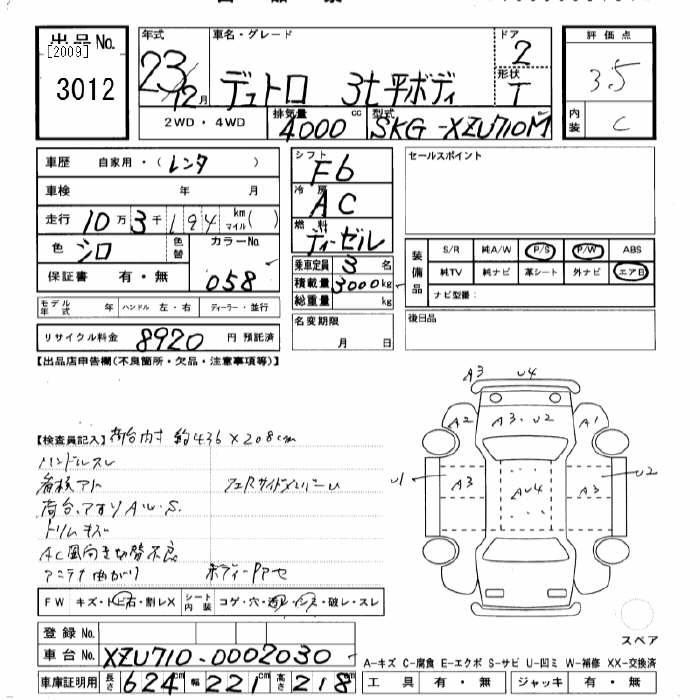 出品No.
[2009]
3012
年式
23/12月
車名・グレード
デュトロ 3t平ボディ
ドア
2
形状
T
評価点
3.5
内装
C
2WD・4WD
排気量
4000cc
型式
SKG-XZU710M
車歴 自家用・(レンタ)
車検 年 月
走行 10万3千194km マイル( )
色 シロ 色替
カラーNo.
058
保証書 有・無
モデル年式 年 ハンドル 左・右 ディーラー・並行
リサイクル料金 8920円 預託済
シフト
F6
冷房
AC
燃料
ディーゼル
乗車定員 3名
積載量 3000kg
総重量 kg
名変期限
月 日
セールスポイント
装備品
S/R 純A/W P/S P/W ABS
純TV 純ナビ 革シート 外ナビ エアB
ナビ型番:
後日品
【出品店申告欄(不良箇所・欠品・注意事項等)】
【検査員記入】荷台内寸 約436×208cm
ハンドルスレ
看板アト
荷台、アオリAU.S.
トリムキズ
AC風向き切替不良
アンテナ曲がり ボディーPアセ
A3 U4
A2 A3.U2 A1
U1 A3 AU4 A3 U2
スペア
FW キズ・トビ石・割レX シート内装 コゲ・穴・汚レ・シミ・破レ・スレ
登録No.
車台No. XZU710-0002030
車庫証明用 長さ 624cm 幅 221cm 高さ 218cm
A-キズ C-腐食 E-エクボ S-サビ U-凹ミ W-補修 XX-交換済
工具 有・無 ジャッキ 有・無